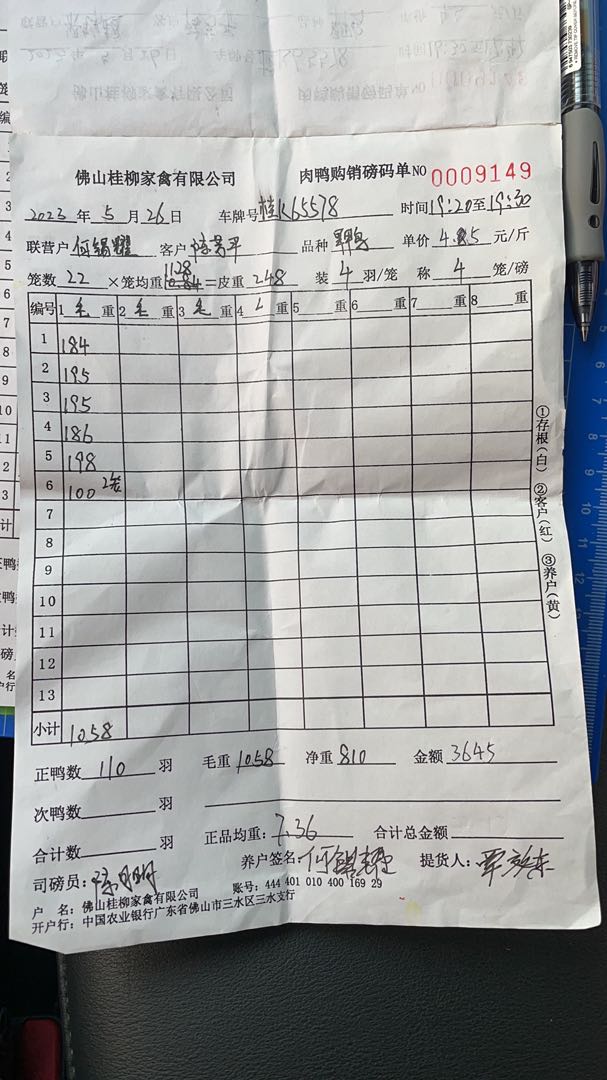 佛山桂柳家禽有限公司 肉鸭购销磅码单NO 0009149
2023年5月26日 车牌号桂K65578 时间19:20至19:30
联营户何锡耀 客户 品种 单价4.85元/斤
笼数22×笼均重11.28=皮重248 装4羽/笼 称4笼/磅
编号 1毛重 2毛重 3毛重 4重 5重 6重 7重 8重
1 184
2 195
3 195
4 186
5 198
6 100
7
8
9
10
11
12
13
小计 1058
正鸭数110羽 毛重1058 净重810 金额3645
次鸭数 羽
合计数 羽 正品均重:7.36 合计总金额
司磅员: 养户签名:何锡耀 提货人:
户 名:佛山桂柳家禽有限公司 账号:444 401 010 400 169 29
开户行:中国农业银行广东省佛山市三水区三水支行
①存根(白) ②客户(红) ③养户(黄)